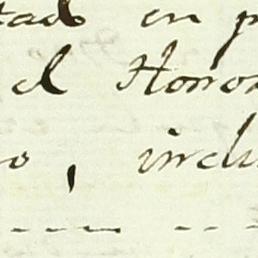 tad en p
el Honor
o, inclu